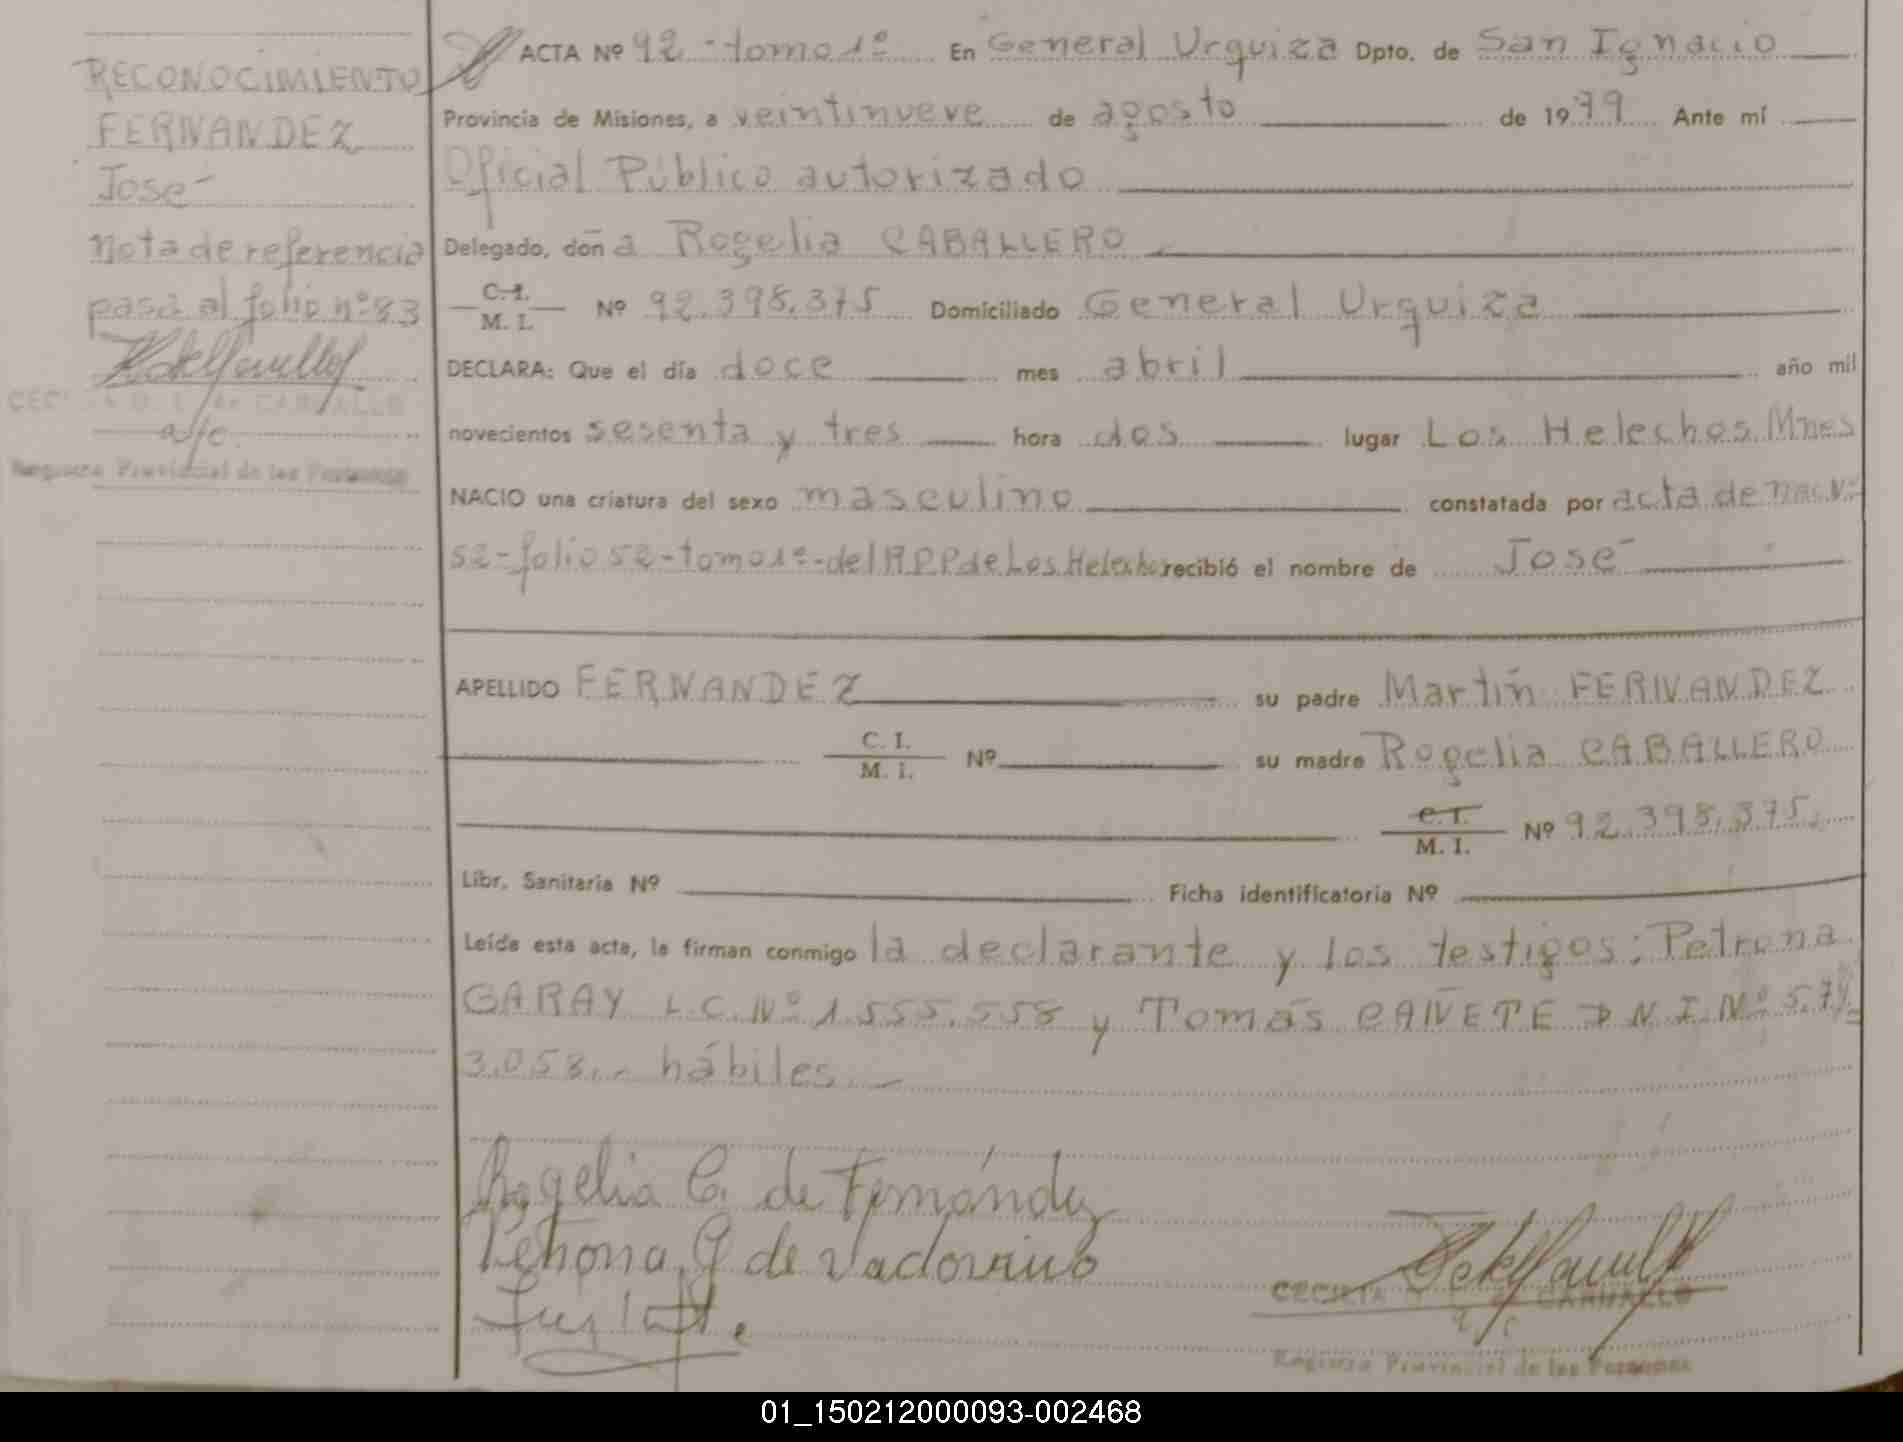 RECONOCIMIENTO
FERNANDEZ
José
Nota de referencia
pasa al folio nº 83
a/c
Registro Provincial de las Personas
ACTA Nº 92 - tomo 1º En General Urquiza Dpto. de San Ignacio
Provincia de Misiones, a veintinueve de agosto de 1979 Ante mí
Oficial Público autorizado
Delegado, doña Rogelia CABALLERO
C.I. M. I. Nº 92.398.375 Domiciliado General Urquiza
DECLARA: Que el día doce mes abril año mil
novecientos sesenta y tres hora dos lugar Los Helechos Mnes
NACIO una criatura del sexo masculino constatada por acta de nac. Nº
52-folio 52-tomo 1º-del R.P.P de Los Helechos recibió el nombre de José
APELLIDO FERNANDEZ su padre Martín FERNANDEZ
C. I. M. I. Nº su madre Rogelia CABALLERO
C.I. M. I. Nº 92.398.375.
Libr. Sanitaria Nº Ficha identificatoria Nº
Leída esta acta, la firman conmigo la declarante y los testigos: Petrona
GARAY L.C. Nº 1.555.558 y Tomás CAÑETE D.N.I. Nº 5.79=
3.053.- hábiles.-
Rogelia C. de Fernández
Petrona G de
CECILIA CARVALLO
a/c
Registro Provincial de las Personas
01_150212000093-002468